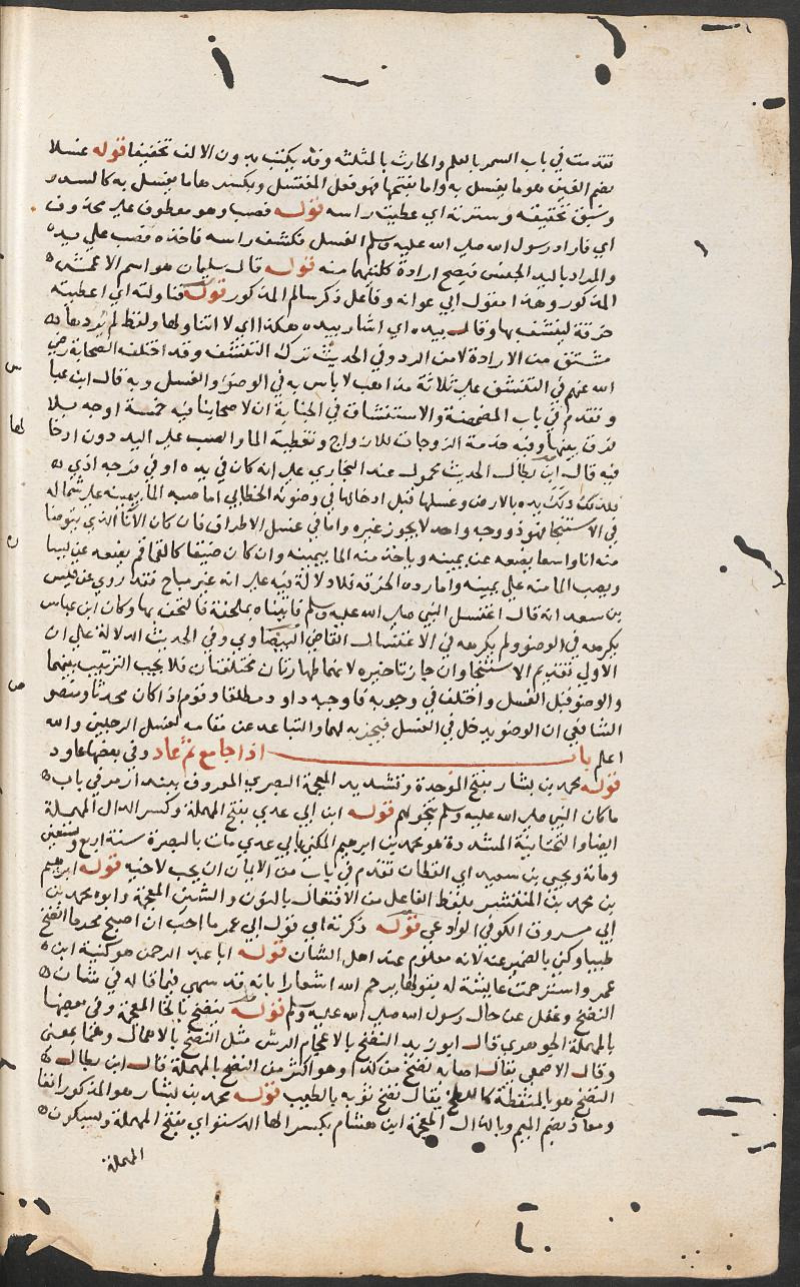 تقدمت في باب السمر بالعلم والحارث بالمثلثة وقد يكتب بدون الالف تخفيفا قوله غسلا
بضم الغين هو ما يغتسل به واما بفتحها فهو فعل المغتسل وبكسرها ما يغسل به كالسدر
وسبق تحقيقه وسترته اي غطيت راسه قوله فصب وهو معطوف على محذوف
اي فاراد رسول الله صلى الله عليه وسلم الغسل فكشف راسه فاخذه فصب على يده
والمراد باليد الجنس فيصح ارادة كلتيهما منه قوله قال سليمان هو اسم الاعمش
المذكور وهذا مقول ابي عوانة وفاعل ذكر سالم المذكور قوله فناولته اي اعطيته
خرقة لينشف بها وقال بيده اي اشار بيده هكذا اي لا اتناولها ولفظ لم يردها
مشتق من الارادة لا من الرد وفي الحديث ترك التنشف وقد اختلف الصحابة رضي
الله عنهم في التنشف على ثلاثة مذاهب لا باس به في الوضوء والغسل وبه قال ابن عبا
وتقدم في باب المضمضة والاستنشاق في الجنابة ان لاصحابنا فيه خمسة اوجه بلا
فرق بينهما وفيه خدمة الزوجات للازواج وتغطية الما والصب على اليد دون ادخا
فيه قال ابن بطال الحديث محمول عند البخاري على انه كان في يده او في فرجه اذي
فلذلك دلك يده بالارض وغسلها قبل ادخالها في وضوئه الخطابي اما صبه الما بيمينه على شماله
في الاستنجا فهو ذو وجه واحد لا يجوز غيره واما في غسل الاطراف فان كان الانا الذي يتوضا
منه انا واسعا يضعه عن يمينه وياخذ منه الما بيمينه وان كان ضيقا كالقماقم يضعه عن يسا
ويصب الما منه على يمينه واما رده الخرقة فلا دلالة فيه على انه غير مباح فقد روي عن قيس
بن سعد انه قال اغتسل النبي صلى الله عليه وسلم فاتيناه بملحفة فالتحف بها وكان ابن عباس
يكرهه في الوضوء ولم يكرهه في الاغتسال القاضي البيضاوي وفي الحديث الدلالة على ان
الاولى تقديم الاستنجا وان جاز تاخيره لانهما طهارتان مختلفتان فلا يجب الترتيب بينهما
والوضوء قبل الغسل واختلف في وجوبه فاوجبه داود مطلقا وقوم اذا كان محدثا ومنصو
الشافعي ان الوضوء يدخل في الغسل فيجزيه لهما والتباعد عن مقامه لغسل الرجلين والله
اعلم باب اذا جامع ثم عاد وفي بعضها عاود
قوله محمد بن بشار بفتح الموحدة وتشديد المعجمة البصري المعروف ببندار مر في باب
ما كان النبي صلى الله عليه وسلم يتخولهم قوله ابن ابي عدي بفتح المهملة وكسر الدال المهملة
ايضا والتحتانية المشددة هو محمد بن ابراهيم المكني بابي عدي مات بالبصرة سنة اربع وتسعين
ومائة ويحيى بن سعيد اي القطان تقدم في باب من الايمان ان يحب لاخيه قوله ابراهيم
بن محمد بن المنتشر بلفظ الفاعل من الافتعال بالنون والشين المعجمة وابوه محمد بن
ابي مسروق الكوفي الوادعي قوله ذكرته اي قول ابن عمر ما احب ان اصبح محرما انضخ
طيبا وكني بالضمير عنه لانه معلوم عند اهل الشان قوله ابا عبد الرحمن هو كنية ابن
عمر واسترحمت عايشة له بقولها يرحم الله اشعارا بانه قد سهى فيما قاله في شان
النضخ وغفل عن حال رسول الله صلى الله عليه وسلم قوله ينضخ بالخا المعجمة وفي بعضها
بالمهملة الجوهري قال ابو زيد النضخ بالاعجام الرش مثل النضح بالاهمال وهما بمعنى
وقال الاصمعي يقال اصابه نضخ من كذا وهو اكثر من النضح بالمهملة قال ابن بطال
النضخ هو بالمنقطة كاللطخ يقال نضخ ثوبه بالطيب قوله محمد بن بشار هو المذكور انفا
ومعاذ بضم الميم وبالذال المعجمة ابن هشام بكسر الها الدستواي بفتح المهملة وسكون
المهملة